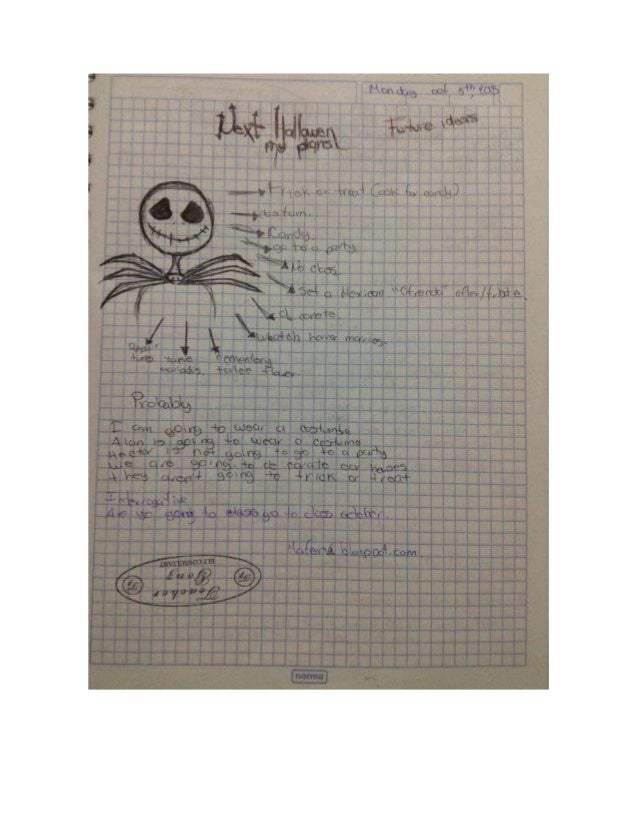 Monday oct 5th, 2015
Next Hallowen
my plans!
Future ideas
trick or treat (look for candy)
costum.
Candy.
go to a party.
No class.
Set a Mexican "Ofrenda" offer/tribute.
whatch horror movies.
cementery
take flower.
Probably
I am going to wear a costumbe
Alan is going to wear a costume
Hector is not going to go to a party
We are going to de corate our houses
they aren't going to trick or treat
Interrogative
Are yo going to go to class october.
blogspot.com.
Teacher
Yong
ELT CONSULTANT
norma